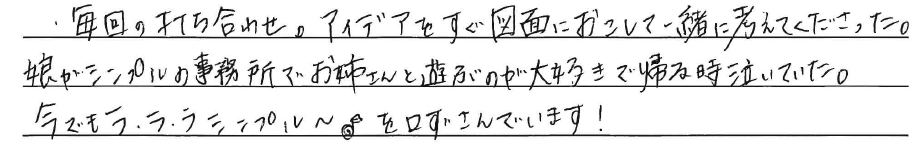 ・毎回の打ち合わせ。アイデアをすぐ図面におこして一緒に考えてくださった。
娘がシンプルの事務所でお姉さんと遊ぶのが大好きで帰る時泣いていた。
今でもラ・ラ・ラシンプル～♪を口ずさんでいます！